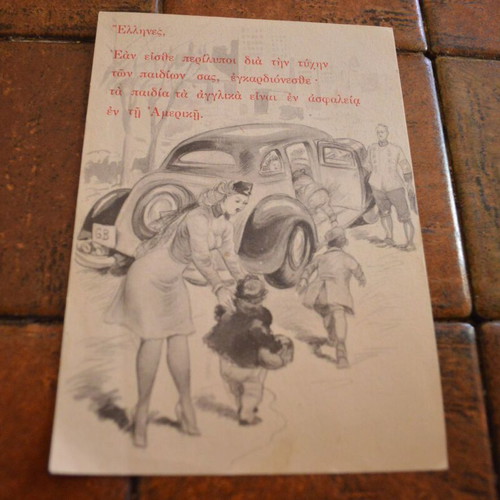 Ἕλληνες,
Ἐὰν εἶσθε περίλυποι διὰ τὴν τύχην
τῶν παιδίον σας, ἐγκαρδιόνεσθε·
τὰ παιδία τὰ ἀγγλικὰ εἶναι ἐν ἀσφαλείᾳ
ἐν τῇ Ἀμερικῇ.
GB